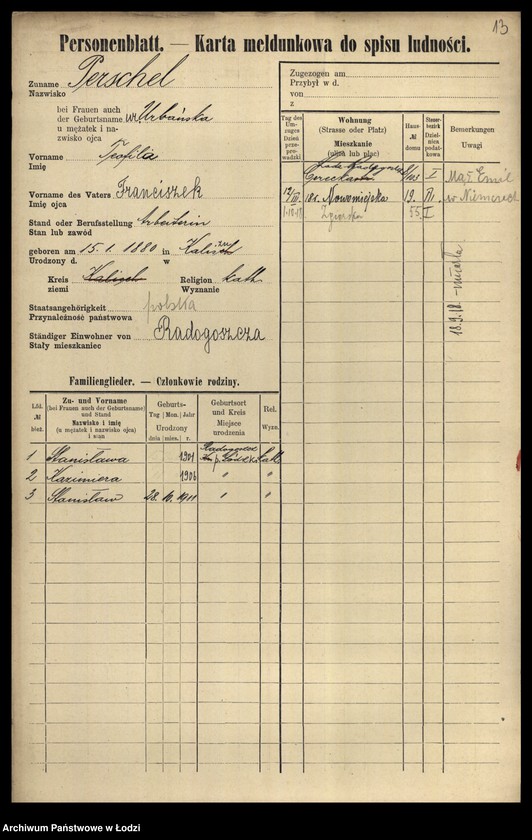 13
Personenblatt. — Karta meldunkowa do spisu ludności.
Zuname
Nazwisko
Perschel
bei Frauen auch
der Geburtsname
u mężatek i na-
zwisko ojca
ur. Urbańska
Vorname
Imię
Teofilia
Vorname des Vaters
Imię ojca
Franciszek
Stand oder Berufsstellung
Stan lub zawód
Arbeiterin
geboren am 15. 1. 1880 in Kalisz
Urodzony d. w
Kreis
ziemi
Kalisch
Religion
Wyznanie
kath
Staatsangehörigkeit
Przynależność państwowa
polska
Ständiger Einwohner von
Stały mieszkaniec
Radogoszcza
Zugezogen am
Przybył w d.
von
z
Tag des Um-zuges
Dzień prze-pro-wadzki
Wohnung
(Strasse oder Platz)
Mieszkanie
(ulica lub plac)
Haus-
№
domu
Steuer-bezirk
Dziel-nica podat-kowa
Bemerkungen
Uwagi
I
Mąż Emil
12/III 18 r. Nowomiejska 19. III.
w Niemczech
1.10.18 Zgierska 55. I
18.9.18. - umarła.
Familienglieder. — Członkowie rodziny.
Lfd.
№
bież.
Zu- und Vorname
(bei Frauen auch der Geburtsname)
und Stand
Nazwisko i imię
(u mężatek i nazwisko ojca)
i stan
Geburts-
Tag Mon. Jahr
Urodzony
dnia mies. r.
Geburtsort
und Kreis
Miejsce
urodzenia
Rel.
Wyzn.
1 Stanisława 1901 kath
2 Kazimiera 1906 " "
3 Stanisław 28. 10. 1911 " "
Archiwum Państwowe w Łodzi